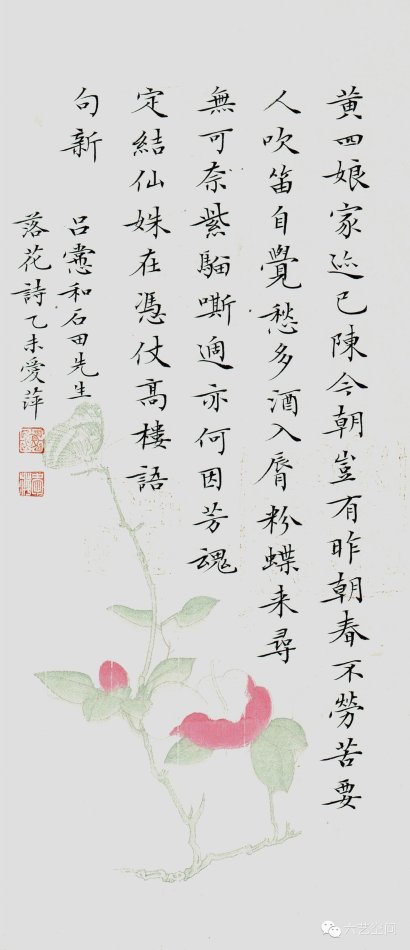 黄四娘家迹已陳今朝豈有昨朝春不勞苦要
人吹笛自覺愁多酒入脣粉蝶来尋
無可奈紫騮嘶過亦何因芳魂
定結仙姝在憑仗高樓語
句新
吕㦂和石田先生
落花詩乙未愛萍
六艺空间